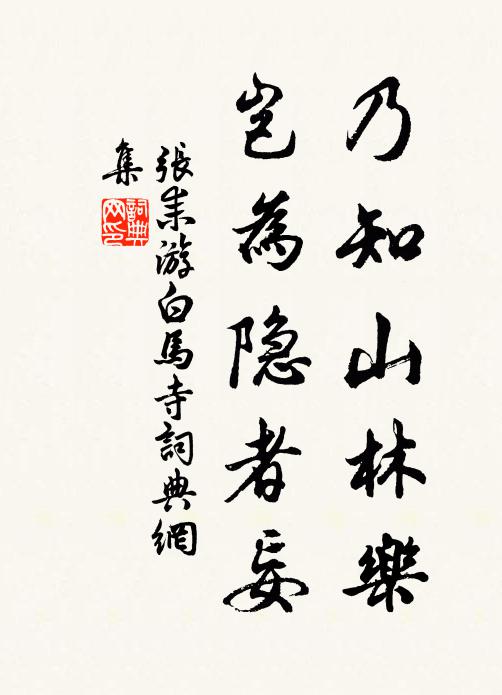 乃知山林樂
豈為隱者妄
張耒游白馬寺詞典網
集
詞典
网印